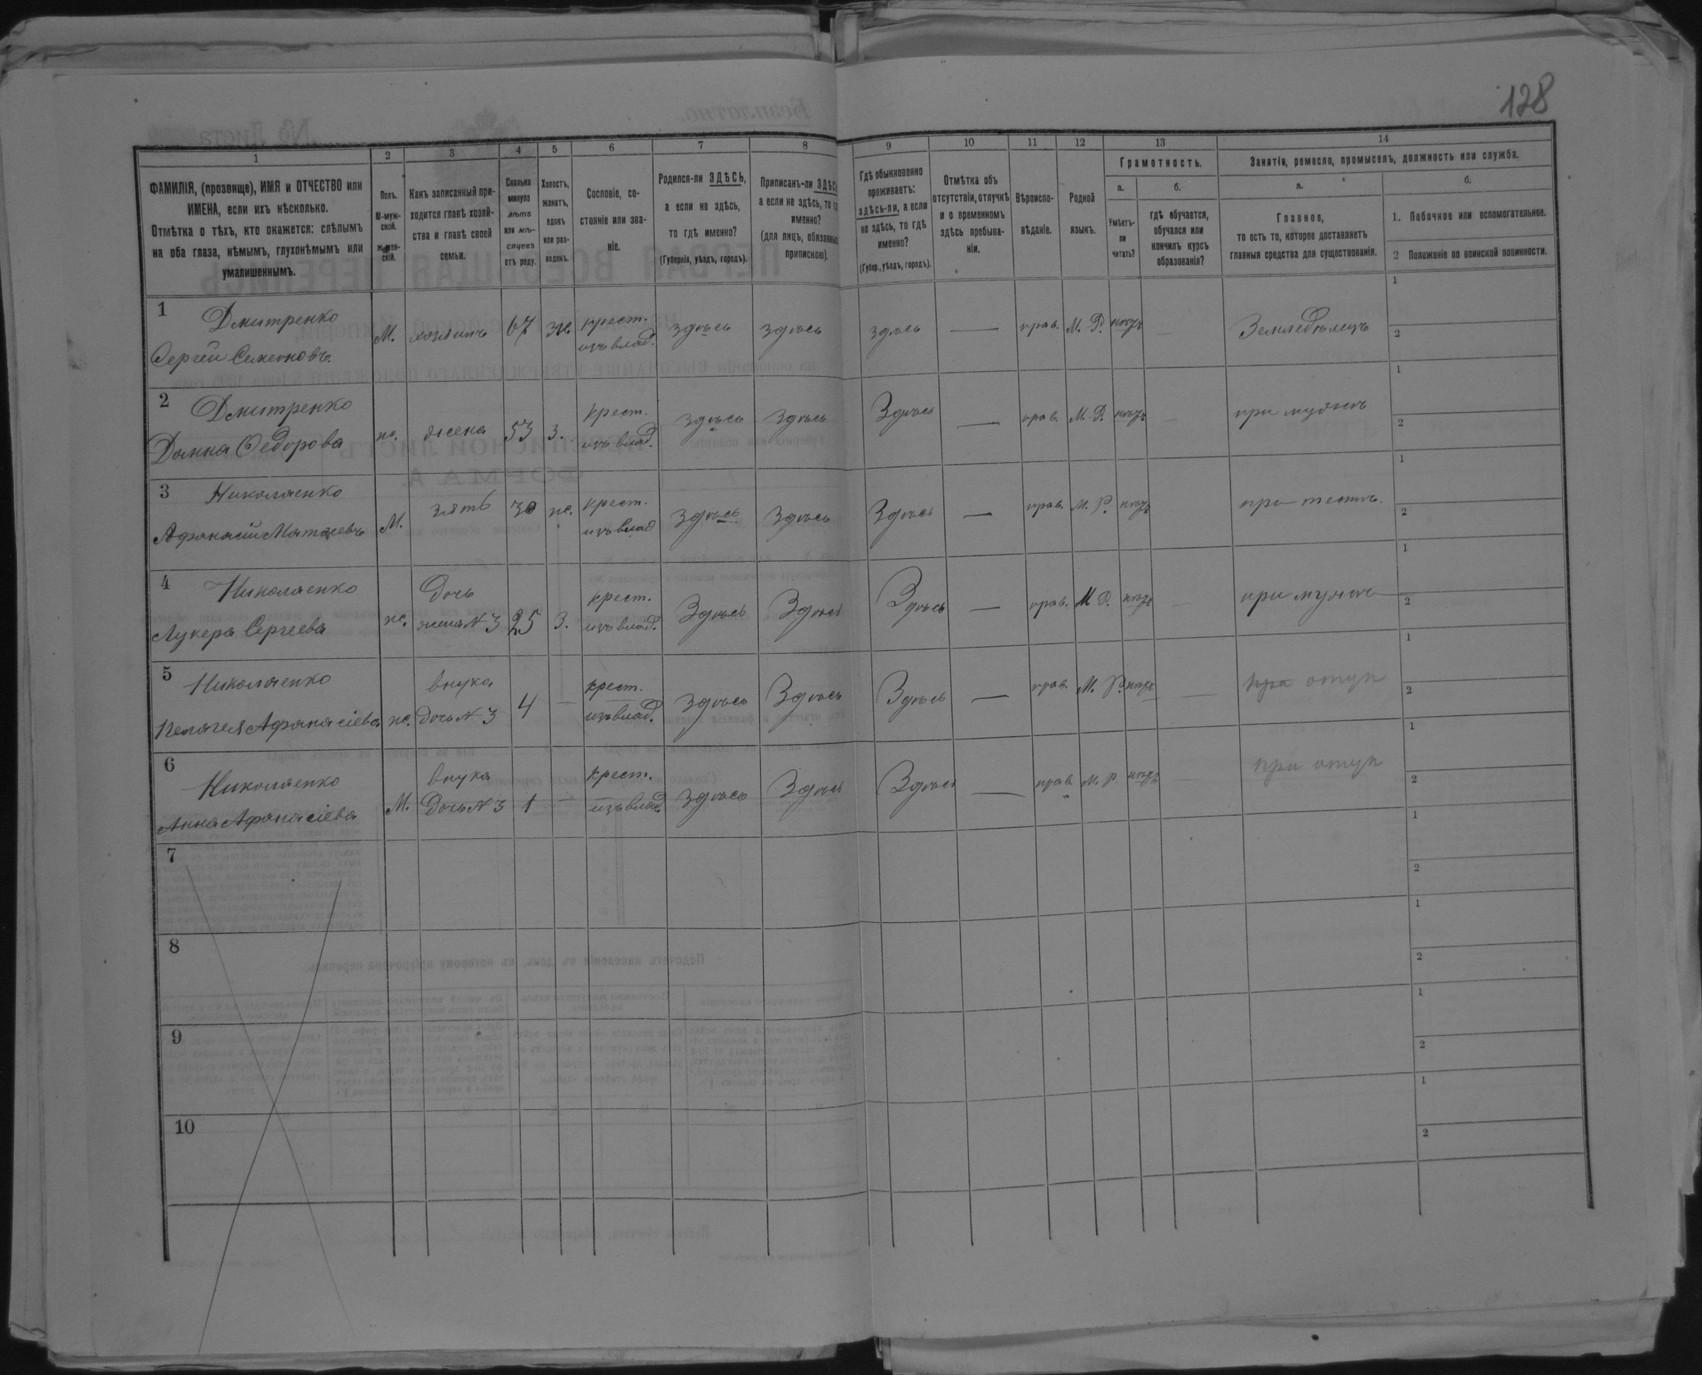 128
1
2
3
4
5
6
7
8
9
10
11
12
13
14
ФАМИЛІЯ, (прозвище), ИМЯ и ОТЧЕСТВО или
ИМЕНА, если ихъ нѣсколько.
Отмѣтка о тѣхъ, кто окажется: слѣпымъ
на оба глаза, нѣмымъ, глухонѣмымъ или
умалишеннымъ.
Полъ.
М-муж-
ской.
Ж-жен-
скій.
Какъ записанный при-
ходится главѣ хозяй-
ства и главѣ своей
семьи.
Сколько
минуло
лѣтъ
или мѣ-
сяцевъ
отъ роду.
Холостъ,
женатъ,
вдовъ
или раз-
веденъ.
Сословіе, со-
стояніе или зва-
ніе.
Родился-ли ЗДѢСЬ,
а если не здѣсь,
то гдѣ именно?
(Губернія, уѣздъ, городъ).
Приписанъ-ли ЗДѢСЬ
а если не здѣсь, то гдѣ
именно?
(для лицъ, обязанныхъ
припискою).
Гдѣ обыкновенно
проживаетъ:
здѣсь-ли, а если
не здѣсь, то гдѣ
именно?
(Губер., уѣздъ, городъ).
Отмѣтка объ
отсутствіи, отлучкѣ
и о временномъ
здѣсь пребыва-
ніи.
Вѣроиспо-
вѣданіе.
Родной
языкъ.
Грамотность.
а.
Умѣетъ-
ли
читать?
б.
гдѣ обучается,
обучался или
кончилъ курсъ
образованія?
Занятія, ремесло, промыселъ, должность или служба.
а.
Главное,
то есть то, которое доставляетъ
главныя средства для существованія.
б.
1. Побочное или вспомогательное.
2 Положеніе по воинской повинности.
1 Дмитренко
Сергей Семеновъ М. хозяинъ 67 ж. крест. изъ влад. здѣсь здѣсь здѣсь — прав. М. Р. нѣтъ — Земледѣлецъ 1 2
2 Дмитренко
Домна Федорова ж. жена 53 з. крест. изъ влад. здѣсь Здѣсь Здѣсь — прав. М. Р. нѣтъ — при мужѣ 1 2
3 Николаенко
Афанасій Матвеевъ М. зять 30 ж. крест. изъ влад Здѣсь Здѣсь Здѣсь — прав. М. Р. нѣтъ при тестѣ. 1 2
4 Николаенко
Лукера Сергеева ж. дочь жена N 3 25 з. крест. изъ влад. Здѣсь Здѣсь Здѣсь — прав. М. Р. нѣтъ — при мужѣ 1 2
5 Николаенко
Пелагея Афанасіева ж. внука дочь N 3 4 — крест. изъ влад. здѣсь Здѣсь Здѣсь — прав. М. Р. нѣтъ — при отцѣ 1 2
6 Николаенко
Анна Афанасіева М. внука дочь N 3 1 — крест. изъ влад. здѣсь Здѣсь Здѣсь — прав. М. Р. нѣтъ при отцѣ 1 2
7 1 2
8 1 2
9 1 2
10 1 2